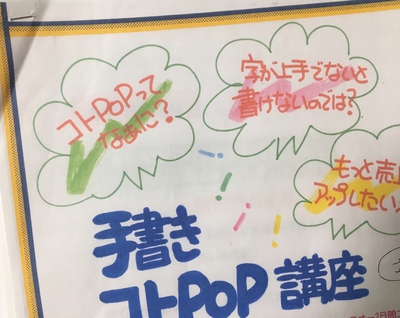 コトPOPって
なあに?
字が上手でないと
書けないのでは?
もっと売
アップしたい!
手書き
コトPOP講座